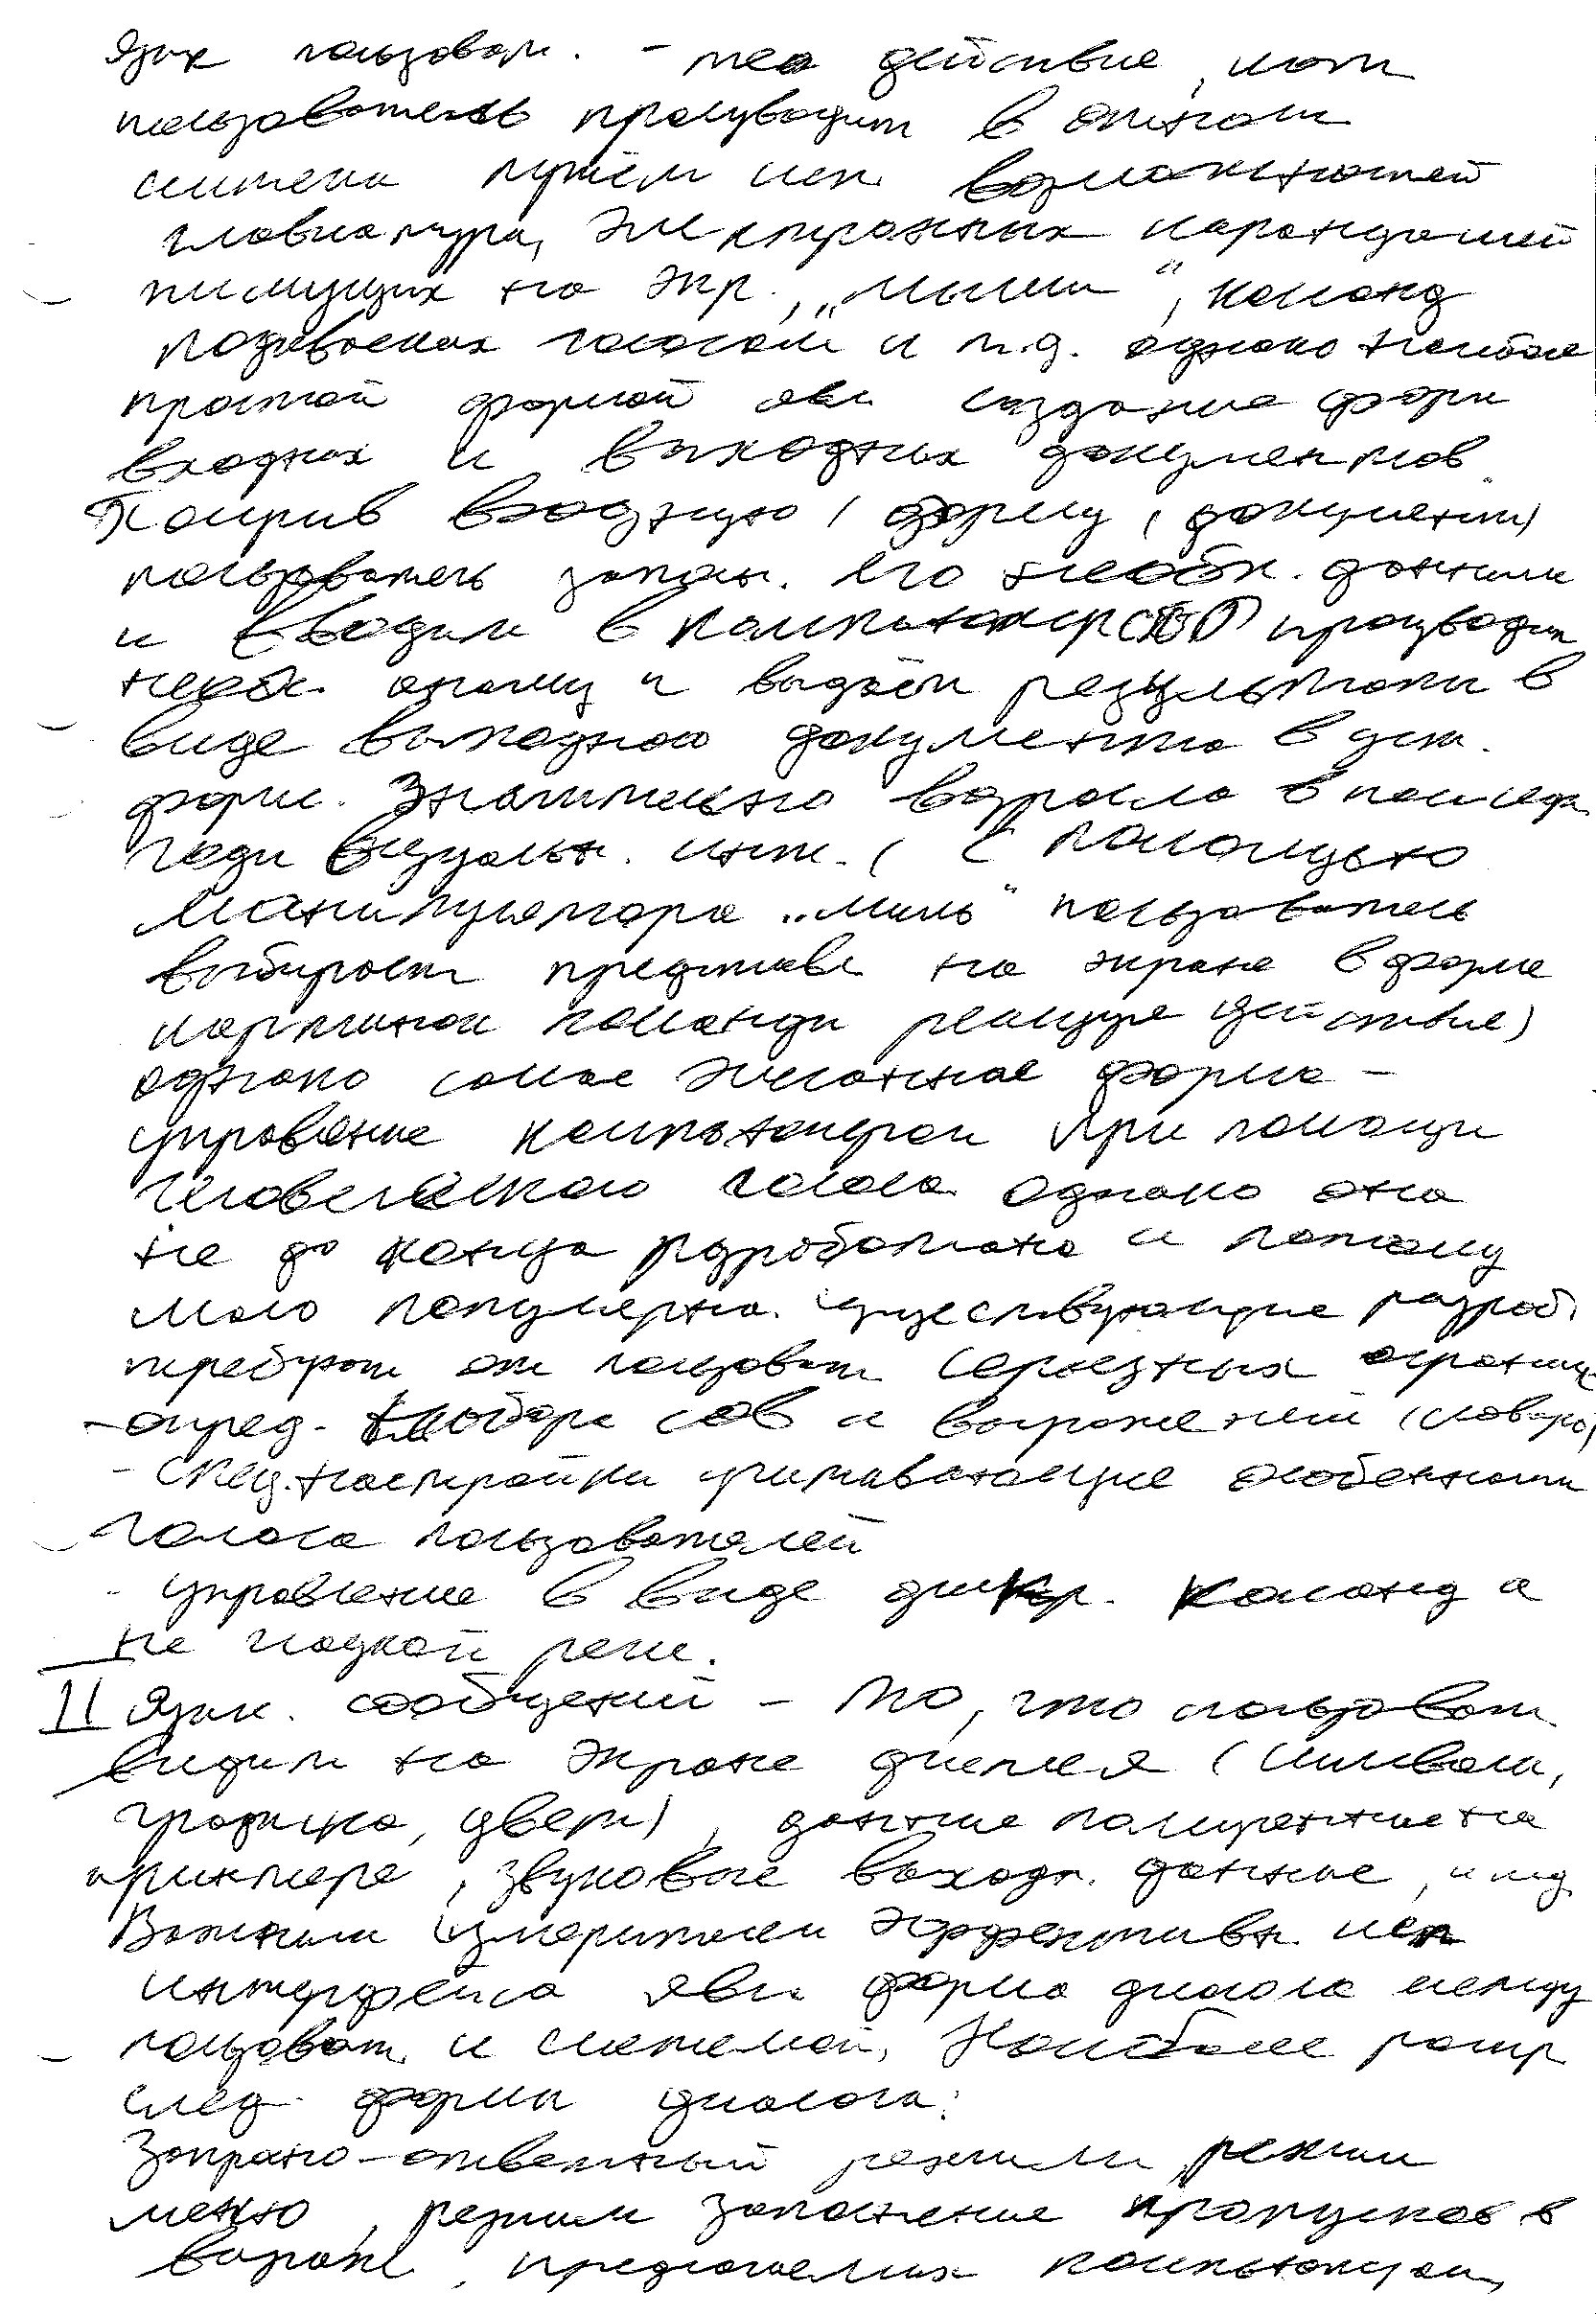 Язык пользоват. - те действие, кот
пользователь производит в отнош
системы путём исп возможностей
клавиатуры, электронных карандашей
пишущих на экр., „мыши“, команд
подаваемых голосом и т.д. однако наиболее
простой формой явл создание форм
входных и выходных документов
Получив входную (форму, документ)
пользователь заполн. его необх. данными
и вводит в компьютер СППР производит
необх. анализ и выдаёт результаты в
виде выходного документа в уст.
форме. Значительно возросло в послед
годы визуальн. инт. ( С помощью
манипулятора „мышь“ пользователь
выбирает представл на экране в форме
картинок команды реализуя действие)
однако самое желанное форма -
управление компьютером при помощи
человеческого голоса однако она
не до конца разработана и потому
мало популярна. Существующие разраб.
требуют от пользоват серьезных огранич
- опред. набора слов и выражений (словаря)
- спец. настройки учитывающие особенности
голоса пользователей
- управление в виде дискр. команд а
не гладкой речи.
II Язык. сообщений - то, что пользоват
видит на экране дисплея (символы,
графика, цвет), данные полученные на
принтере, звуковые выходн. данные, и т.д
Важным измерителем эффективн. исп
интерфейса явл форма диалога между
пользоват. и системой, Наиболее распр
след. формы диалога:
Запросно-ответный режим, режим
меню, режим заполнение пропусков в
выраж , предлагаемых компьютером,